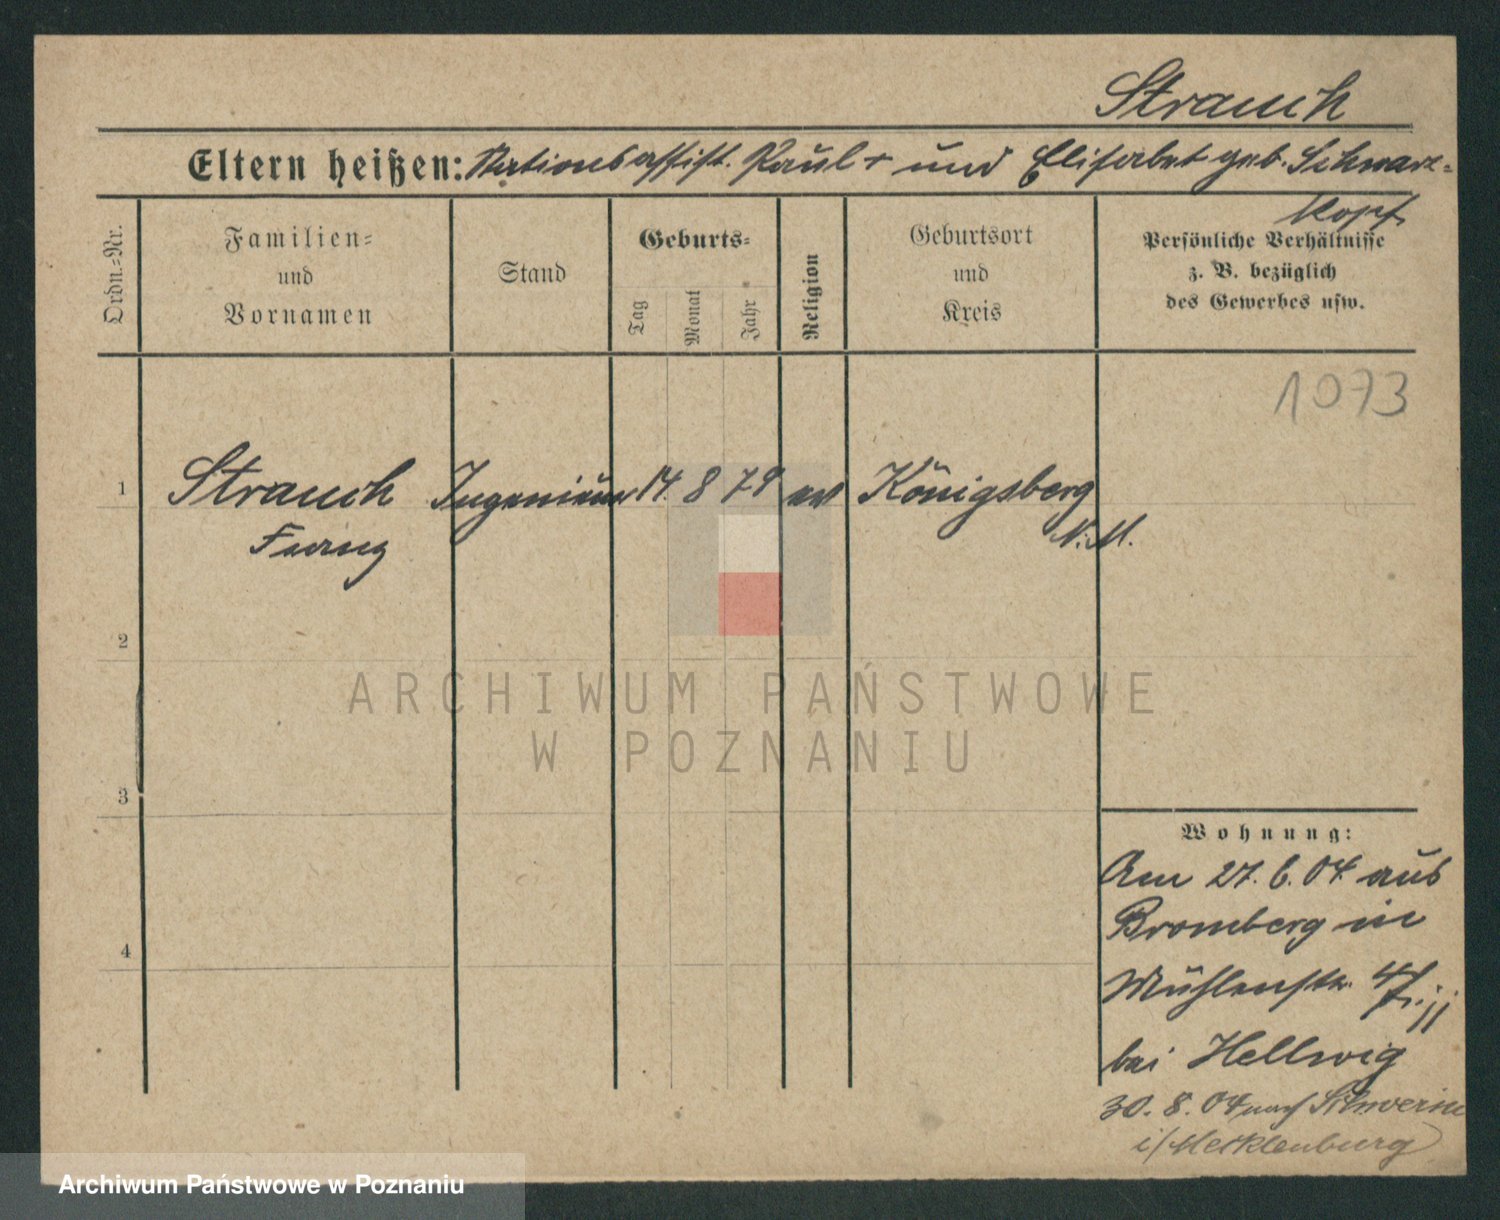 Strauch
Eltern heißen: Stationsassist. Paul + und Elisabet geb. Schwarz=
kopf.
Ordn.=Nr.
Familien=
und
Vornamen
Stand
Geburts=
Tag
Monat
Jahr
Religion
Geburtsort
und
Kreis
Persönliche Verhältnisse
z. B. bezüglich
des Gewerbes usw.
1073
1 Strauch Ingenieur 14. 8 79 ev Königsberg
Franz N. M.
2
3
4
ARCHIWUM PAŃSTWOWE
W POZNANIU
Wohnung:
Am 27. 6. 04. aus
Bromberg in
Mühlenstr.
bei Hellwig
30. 8. 04 nach Schwerin
i/Mecklenburg
Archiwum Państwowe w Poznaniu